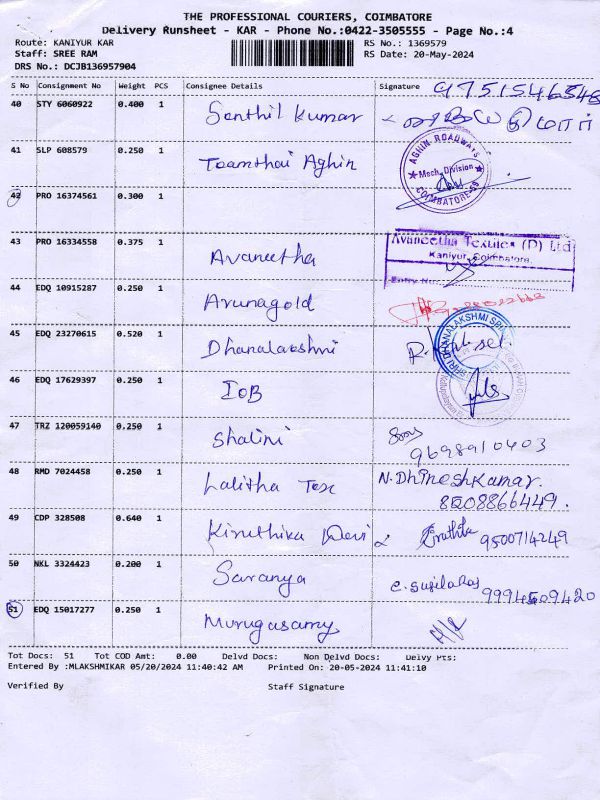 THE PROFESSIONAL COURIERS, COIMBATORE
Delivery Runsheet - KAR - Phone No.:0422-3505555 - Page No.:4
Route: KANIYUR KAR RS No.: 1369579
Staff: SREE RAM RS Date: 20-May-2024
DRS No.: DCJB136957904
S No Consignment No Weight PCS Consignee Details Signature 9751546548
40 STY 6060922 0.400 1 Senthil kumar
41 SLP 608579 0.250 1 Teamthai Aghin
AGHIN ROADWAYS
Mech. Division
COIMBATORE-59
42 PRO 16374561 0.300 1
43 PRO 16334558 0.375 1 Avaneetha
Avaneetha Textiles (P) Ltd
Kaniyur, Coimbatore.
Entry No.
44 EDQ 10915287 0.250 1 Arunagold
45 EDQ 23270615 0.520 1 Dhanalakshmi
46 EDQ 17629397 0.250 1 IOB
47 TRZ 120059140 0.250 1 Shalini
9698910403
48 RMD 7024458 0.250 1 Lalitha Tex N. Dhineshkumar.
8508866449.
49 CDP 328508 0.640 1 Kiruthika Devi 9500714249
50 NKL 3324423 0.200 1 Saranya C. Susila Raj 9994509420
51 EDQ 15017277 0.250 1 Murugasamy
Tot Docs: 51 Tot COD Amt: 0.00 Delvd Docs: Non Delvd Docs: Delvy Pts:
Entered By :MLAKSHMIKAR 05/20/2024 11:40:42 AM Printed On: 20-05-2024 11:41:10
Verified By Staff Signature